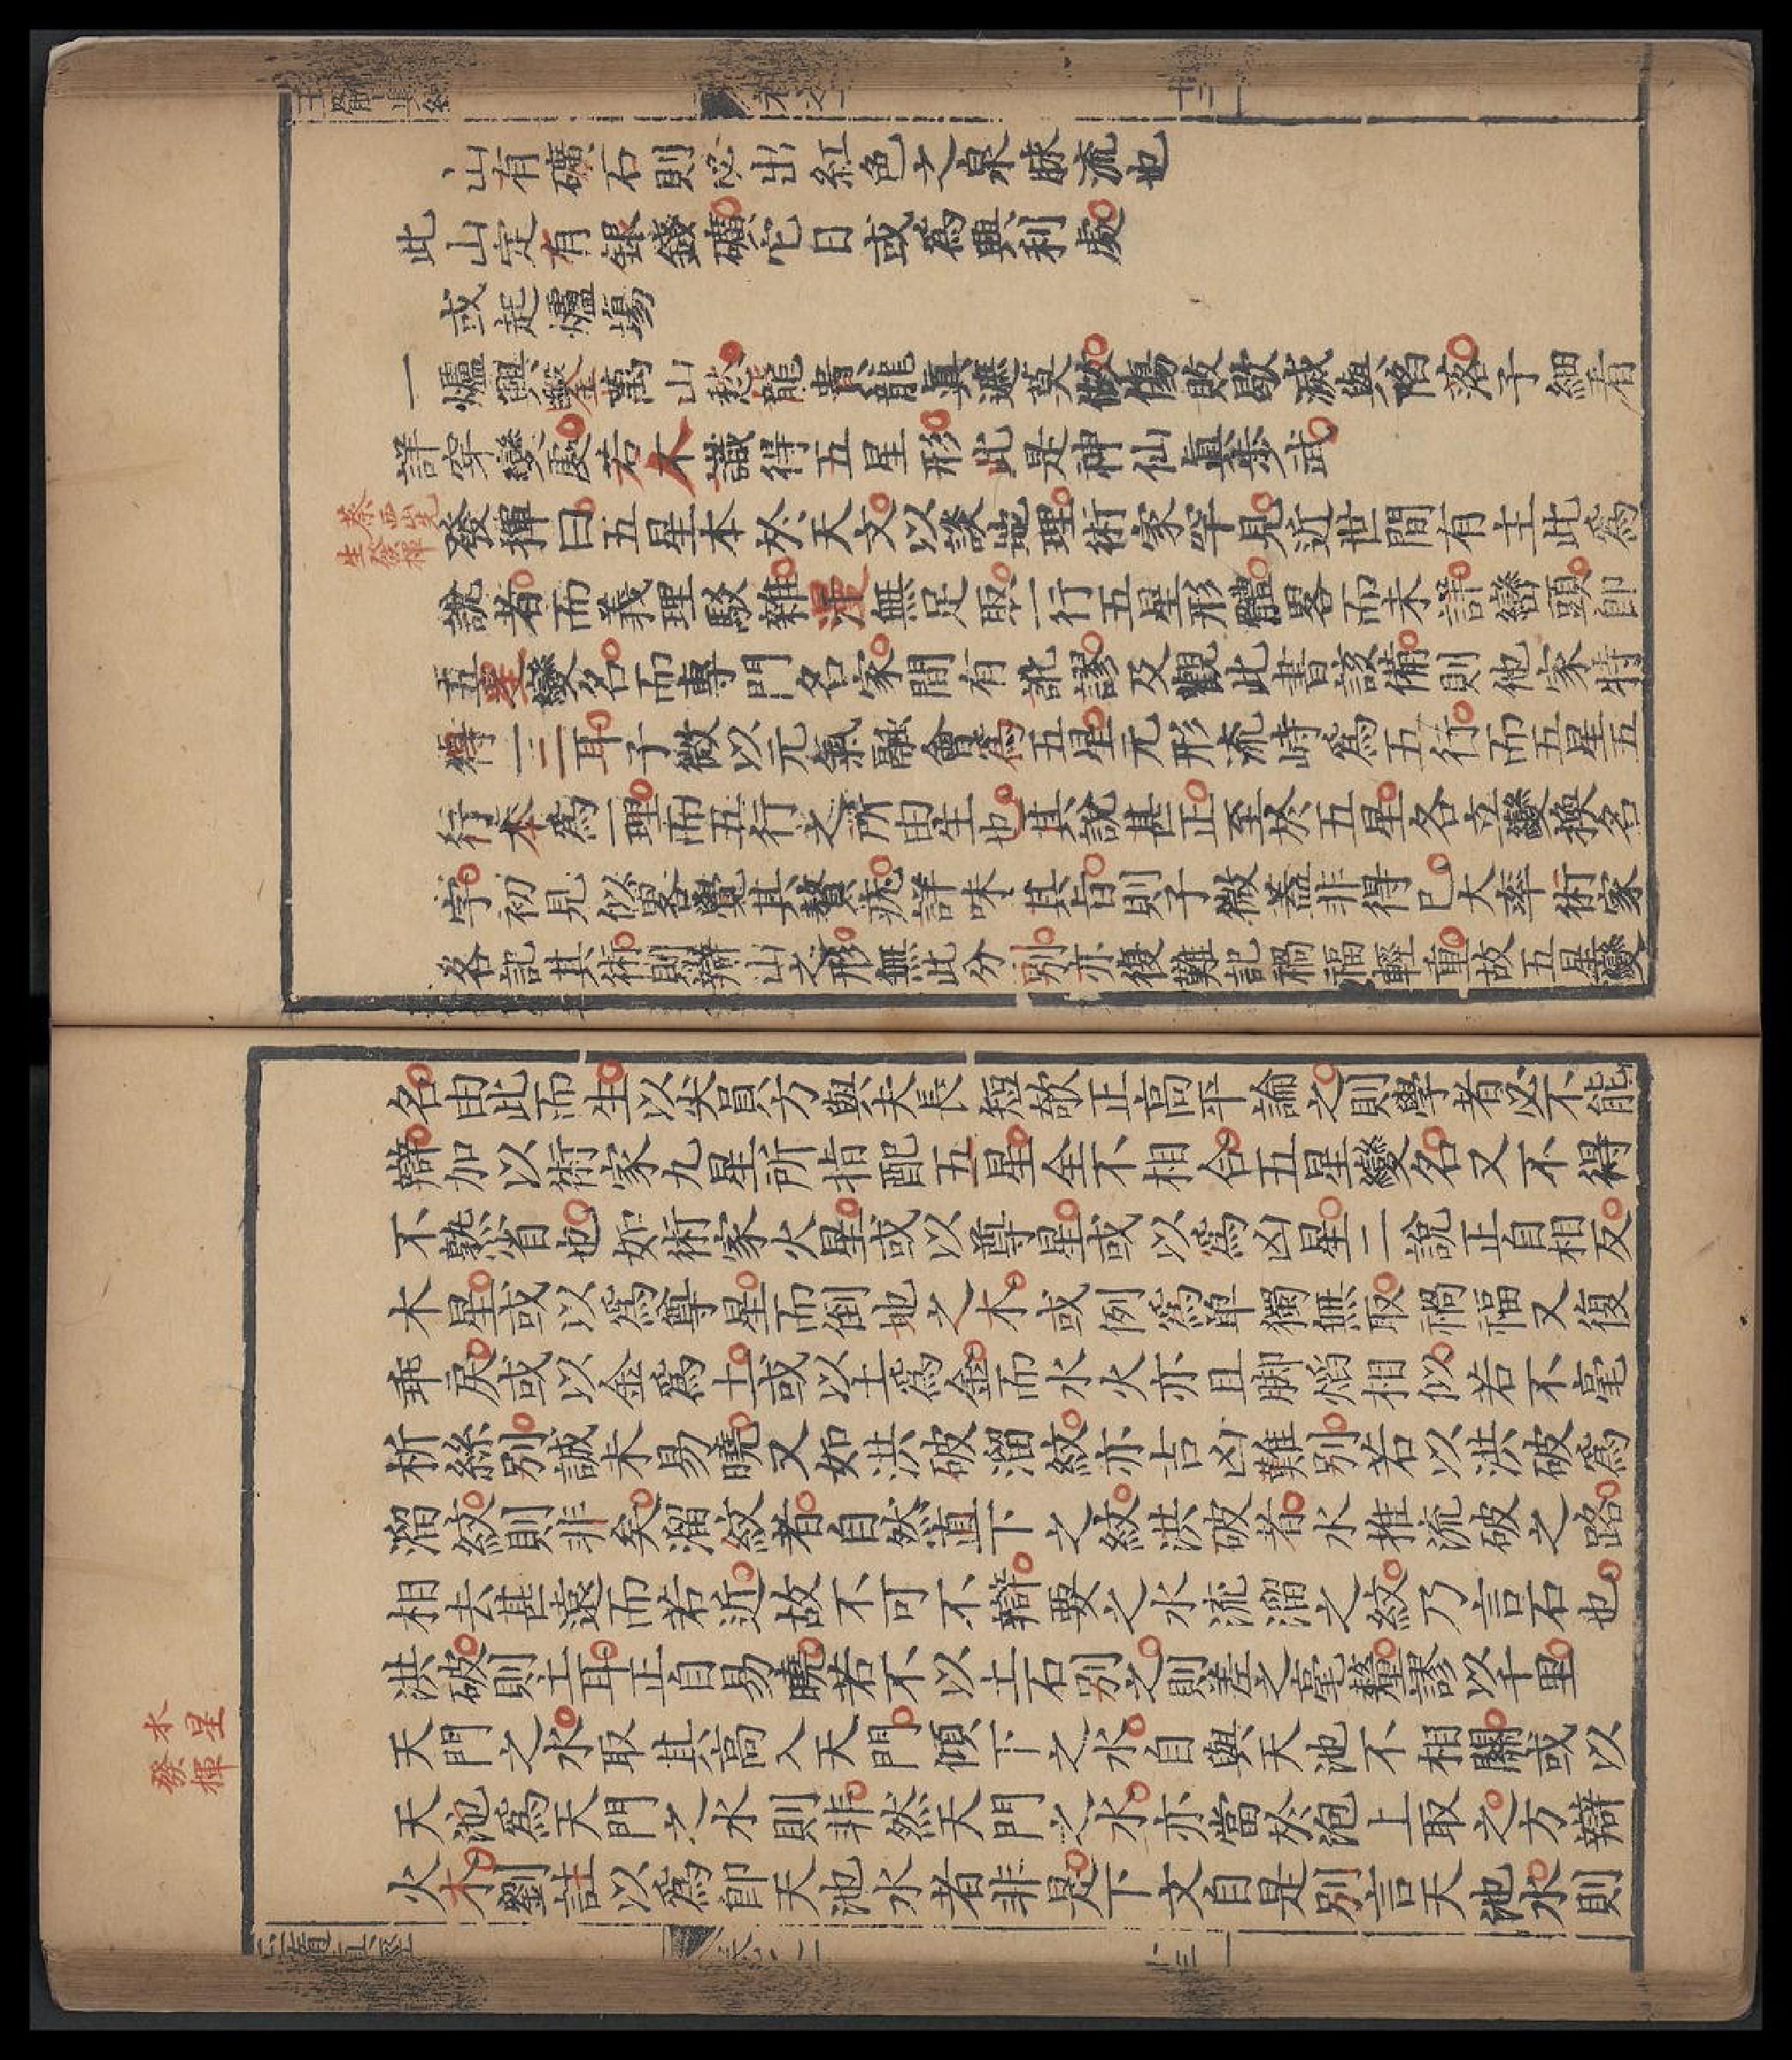 山有礦石則必出紅色之泉脉流也
此山定有銀錢礦它日或為興利處
或起爐場
一爐興鍛萬山愁龍貴龍真遮莫做傷敗歇滅與陷落子細看
詳穿變處若不識得五星形此是神仙真恭武
蔡西山先
生發揮
發揮曰五星本於天文以談地理術家罕見近世間有主此為
說者而義理駁雜混無足取一行五星形體畧而未詳巒頭即
五星變名而專門名家間有訛謬及觀此書該備則他家特
得一二耳子微以元氣融會為五星元形流峙為五行而五星五
行本為一理而五行之所由生也其說甚正至於五星各立變換名
字初見似畧覺其贅疣詳味其旨則子微蓋非得已大率術家
各記其術則辯山之形無此分別亦復難記禍福輕重故五星變
名由此而生以尖員方與夫長短欹正高平論之則學者必不能
辯加以術家九星所指配五星全不相合五星變名又不得
不熟省也如術家火星或以尊星或以為凶星二說正自相反
木星或以為尊星而倒地之木或例為單獨無取禍福又復
乖戾或以金為土或以土為金而水火亦且脚焰相似若不毫
析絲別誠未易曉又如洪破溜紋亦吉凶難別若以洪破為
溜紋則非矣溜紋者自然直下之紋洪破者水推流破之路
相去甚遠而若近故不可不辯要之水流溜之紋乃言石也
洪破則土耳正自易曉若不以土石別之則差之毫釐謬以千里
水星
發揮
天門之水取其高入天門傾下之水自與天池不相關或以
天池為天門之水則非然天門之水亦當於池上取之方辯
火木劉註以為即天池水者非是下文自是別言天池水則